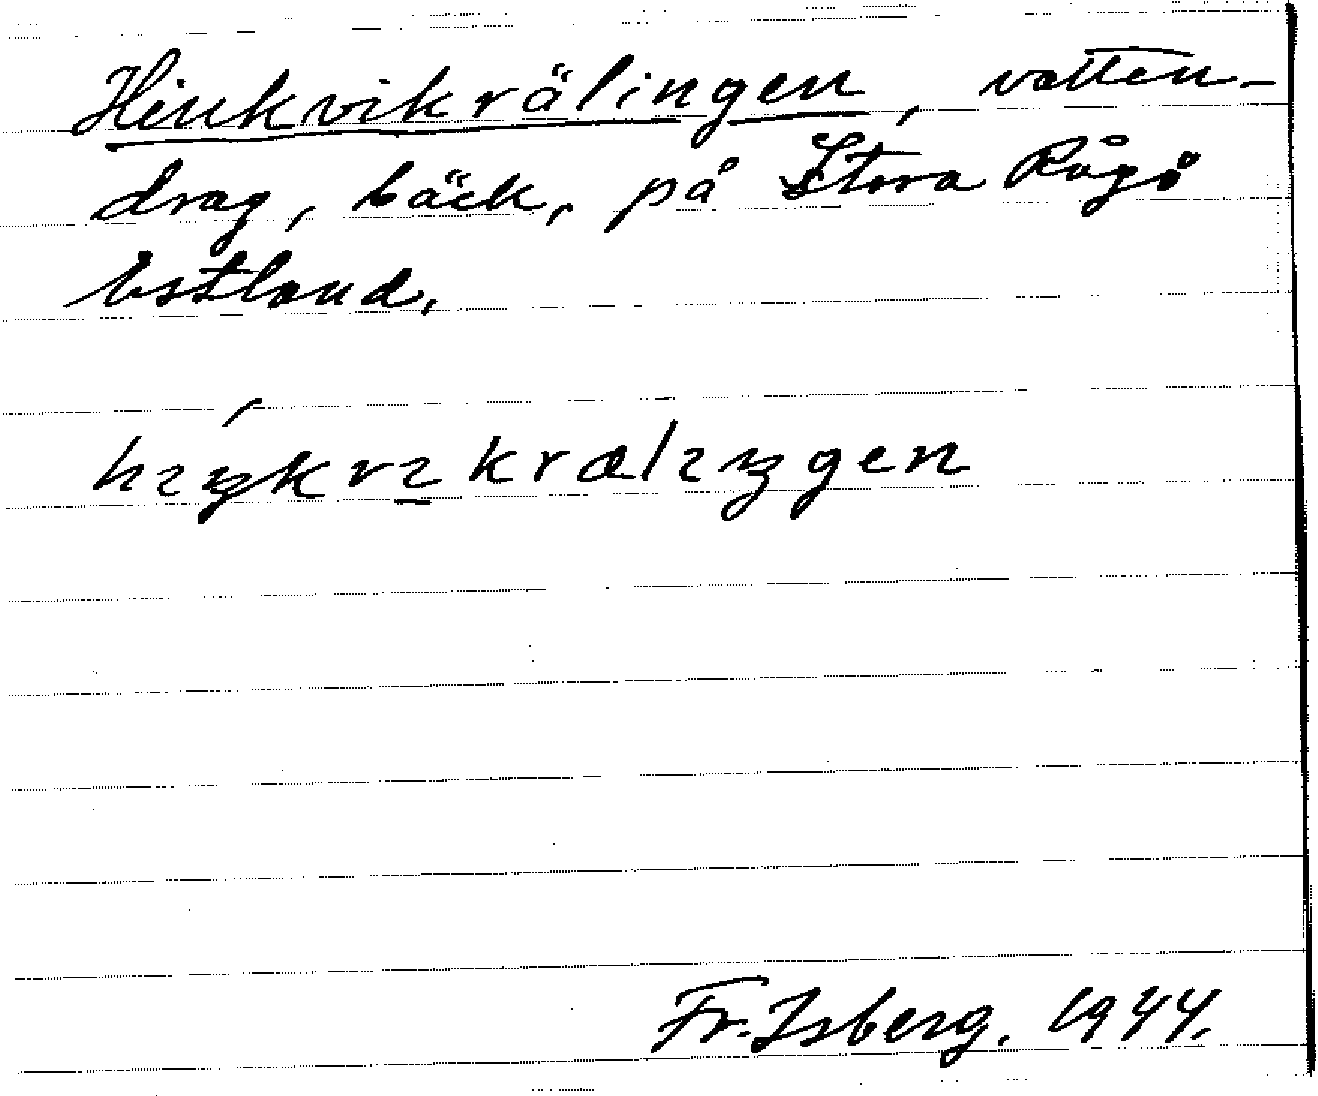 Hinkvikrälingen, vatten-
drag, bäck, på Stora Rågö
Estland.
hıŋkvı̱krælıŋgen
Fr. Isberg. 1944.